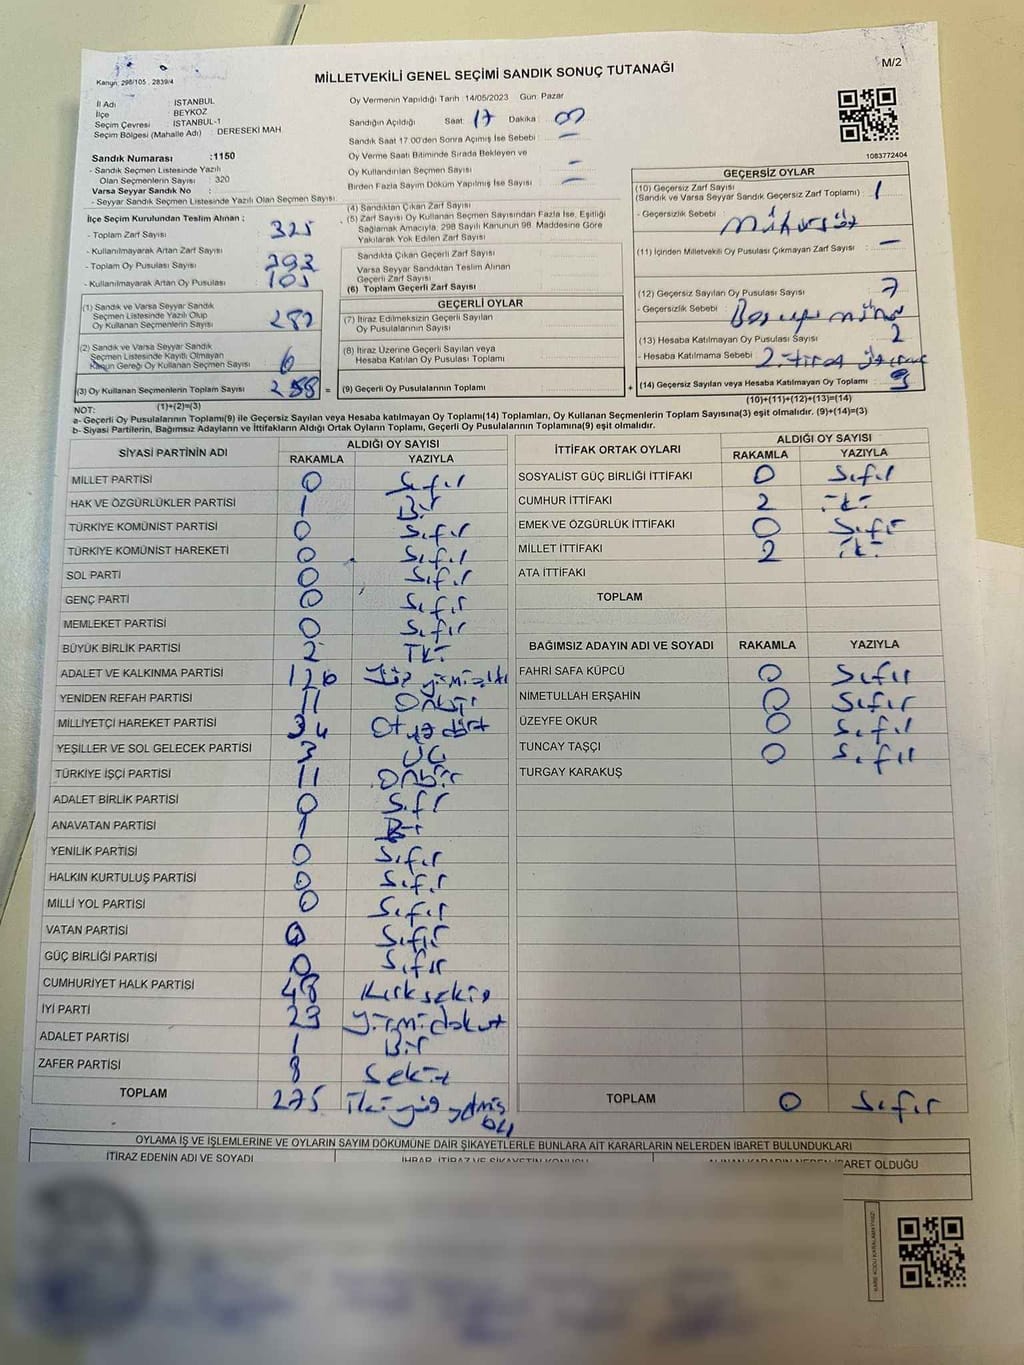 Kanun: 298/105 . 2839/4
MİLLETVEKİLİ GENEL SEÇİMİ SANDIK SONUÇ TUTANAĞI
M/2
İl Adı : İSTANBUL
İlçe : BEYKOZ
Seçim Çevresi : İSTANBUL-1
Seçim Bölgesi (Mahalle Adı) : DERESEKİ MAH
Sandık Numarası :1150
- Sandık Seçmen Listesinde Yazılı
Olan Seçmenlerin Sayısı : 320
Varsa Seyyar Sandık No :
- Seyyar Sandık Seçmen Listesinde Yazılı Olan Seçmen Sayısı:
Oy Vermenin Yapıldığı Tarih :14/05/2023 Gün: Pazar
Sandığın Açıldığı Saat: 17 Dakika :
Sandık Saat 17.00'den Sonra Açımış İse Sebebi : —
Oy Verme Saati Bitiminde Sırada Bekleyen ve
Oy Kullandırılan Seçmen Sayısı : —
Birden Fazla Sayım Döküm Yapılmış İse Sayısı : —
1083772404
İlçe Seçim Kurulundan Teslim Alınan ;
- Toplam Zarf Sayısı : 325
- Kullanılmayarak Artan Zarf Sayısı :
- Toplam Oy Pusulası Sayısı : 393
- Kullanılmayarak Artan Oy Pusulası : 105
(1) Sandık ve Varsa Seyyar Sandık
Seçmen Listesinde Yazılı Olup
Oy Kullanan Seçmenlerin Sayısı : 282
(2) Sandık ve Varsa Seyyar Sandık
Seçmen Listesinde Kayıtlı Olmayan
Kanun Gereği Oy Kullanan Seçmen Sayısı : 6
(3) Oy Kullanan Seçmenlerin Toplam Sayısı 288 =
(4) Sandıktan Çıkan Zarf Sayısı
(5) Zarf Sayısı Oy Kullanan Seçmen Sayısından Fazla İse, Eşitliği
Sağlamak Amacıyla, 298 Sayılı Kanunun 98. Maddesine Göre
Yakılarak Yok Edilen Zarf Sayısı
Sandıkta Çıkan Geçerli Zarf Sayısı
Varsa Seyyar Sandıktan Teslim Alınan
Geçerli Zarf Sayısı
(6) Toplam Geçerli Zarf Sayısı
GEÇERLİ OYLAR
(7) İtiraz Edilmeksizin Geçerli Sayılan
Oy Pusulalarının Sayısı
(8) İtiraz Üzerine Geçerli Sayılan veya
Hesaba Katılan Oy Pusulası Toplamı
(9) Geçerli Oy Pusulalarının Toplamı +
GEÇERSİZ OYLAR
(10) Geçersiz Zarf Sayısı
(Sandık ve Varsa Seyyar Sandık Geçersiz Zarf Toplamı) : 1
- Geçersizlik Sebebi : Mühürsüz
(11) İçinden Milletvekili Oy Pusulası Çıkmayan Zarf Sayısı : —
(12) Geçersiz Sayılan Oy Pusulası Sayısı : 7
- Geçersizlik Sebebi :
(13) Hesaba Katılmayan Oy Pusulası Sayısı : 2
- Hesaba Katılmama Sebebi :
(14) Geçersiz Sayılan veya Hesaba Katılmayan Oy Toplamı : 9
(10)+(11)+(12)+(13)=(14)
NOT: (1)+(2)=(3)
a- Geçerli Oy Pusulalarının Toplamı(9) ile Geçersiz Sayılan veya Hesaba katılmayan Oy Toplamı(14) Toplamları, Oy Kullanan Seçmenlerin Toplam Sayısına(3) eşit olmalıdır. (9)+(14)=(3)
b- Siyasi Partilerin, Bağımsız Adayların ve İttifakların Aldığı Ortak Oyların Toplamı, Geçerli Oy Pusulalarının Toplamına(9) eşit olmalıdır.
SİYASİ PARTİNİN ADI
ALDIĞI OY SAYISI
RAKAMLA YAZIYLA
MİLLET PARTİSİ 0 Sıfır
HAK VE ÖZGÜRLÜKLER PARTİSİ 1 Bir
TÜRKİYE KOMÜNİST PARTİSİ 0 Sıfır
TÜRKİYE KOMÜNİST HAREKETİ 0 Sıfır
SOL PARTİ 0 Sıfır
GENÇ PARTİ 0 Sıfır
MEMLEKET PARTİSİ 0 Sıfır
BÜYÜK BİRLİK PARTİSİ 2 İki
ADALET VE KALKINMA PARTİSİ 126 Yüz yirmialtı
YENİDEN REFAH PARTİSİ 11 Onbir
MİLLİYETÇİ HAREKET PARTİSİ 34 Otuz dört
YEŞİLLER VE SOL GELECEK PARTİSİ 3 Üç
TÜRKİYE İŞÇİ PARTİSİ 11 Onbir
ADALET BİRLİK PARTİSİ 0 Sıfır
ANAVATAN PARTİSİ 1 Bir
YENİLİK PARTİSİ 0 Sıfır
HALKIN KURTULUŞ PARTİSİ 0 Sıfır
MİLLİ YOL PARTİSİ 0 Sıfır
VATAN PARTİSİ 0 Sıfır
GÜÇ BİRLİĞİ PARTİSİ 0 Sıfır
CUMHURİYET HALK PARTİSİ 48 Kırksekiz
İYİ PARTİ 29 Yirmidokuz
ADALET PARTİSİ 1 Bir
ZAFER PARTİSİ 8 Sekiz
TOPLAM 275 İkiyüz yetmiş
beş
İTTİFAK ORTAK OYLARI
ALDIĞI OY SAYISI
RAKAMLA YAZIYLA
SOSYALİST GÜÇ BİRLİĞİ İTTİFAKI 0 Sıfır
CUMHUR İTTİFAKI 2 İki
EMEK VE ÖZGÜRLÜK İTTİFAKI 0 Sıfır
MİLLET İTTİFAKI 2 İki
ATA İTTİFAKI
TOPLAM
BAĞIMSIZ ADAYIN ADI VE SOYADI RAKAMLA YAZIYLA
FAHRİ SAFA KÜPCÜ 0 Sıfır
NIMETULLAH ERŞAHİN 0 Sıfır
ÜZEYFE OKUR 0 Sıfır
TUNCAY TAŞÇI 0 Sıfır
TURGAY KARAKUŞ
TOPLAM 0 Sıfır
OYLAMA İŞ VE İŞLEMLERİNE VE OYLARIN SAYIM DÖKÜMÜNE DAİR ŞİKAYETLERLE BUNLARA AİT KARARLARIN NELERDEN İBARET BULUNDUKLARI
İTİRAZ EDENİN ADI VE SOYADI
İHBAR, İTİRAZ VE ŞİKAYETİN KONUSU
ALINAN KARARIN NEDEN İBARET OLDUĞU